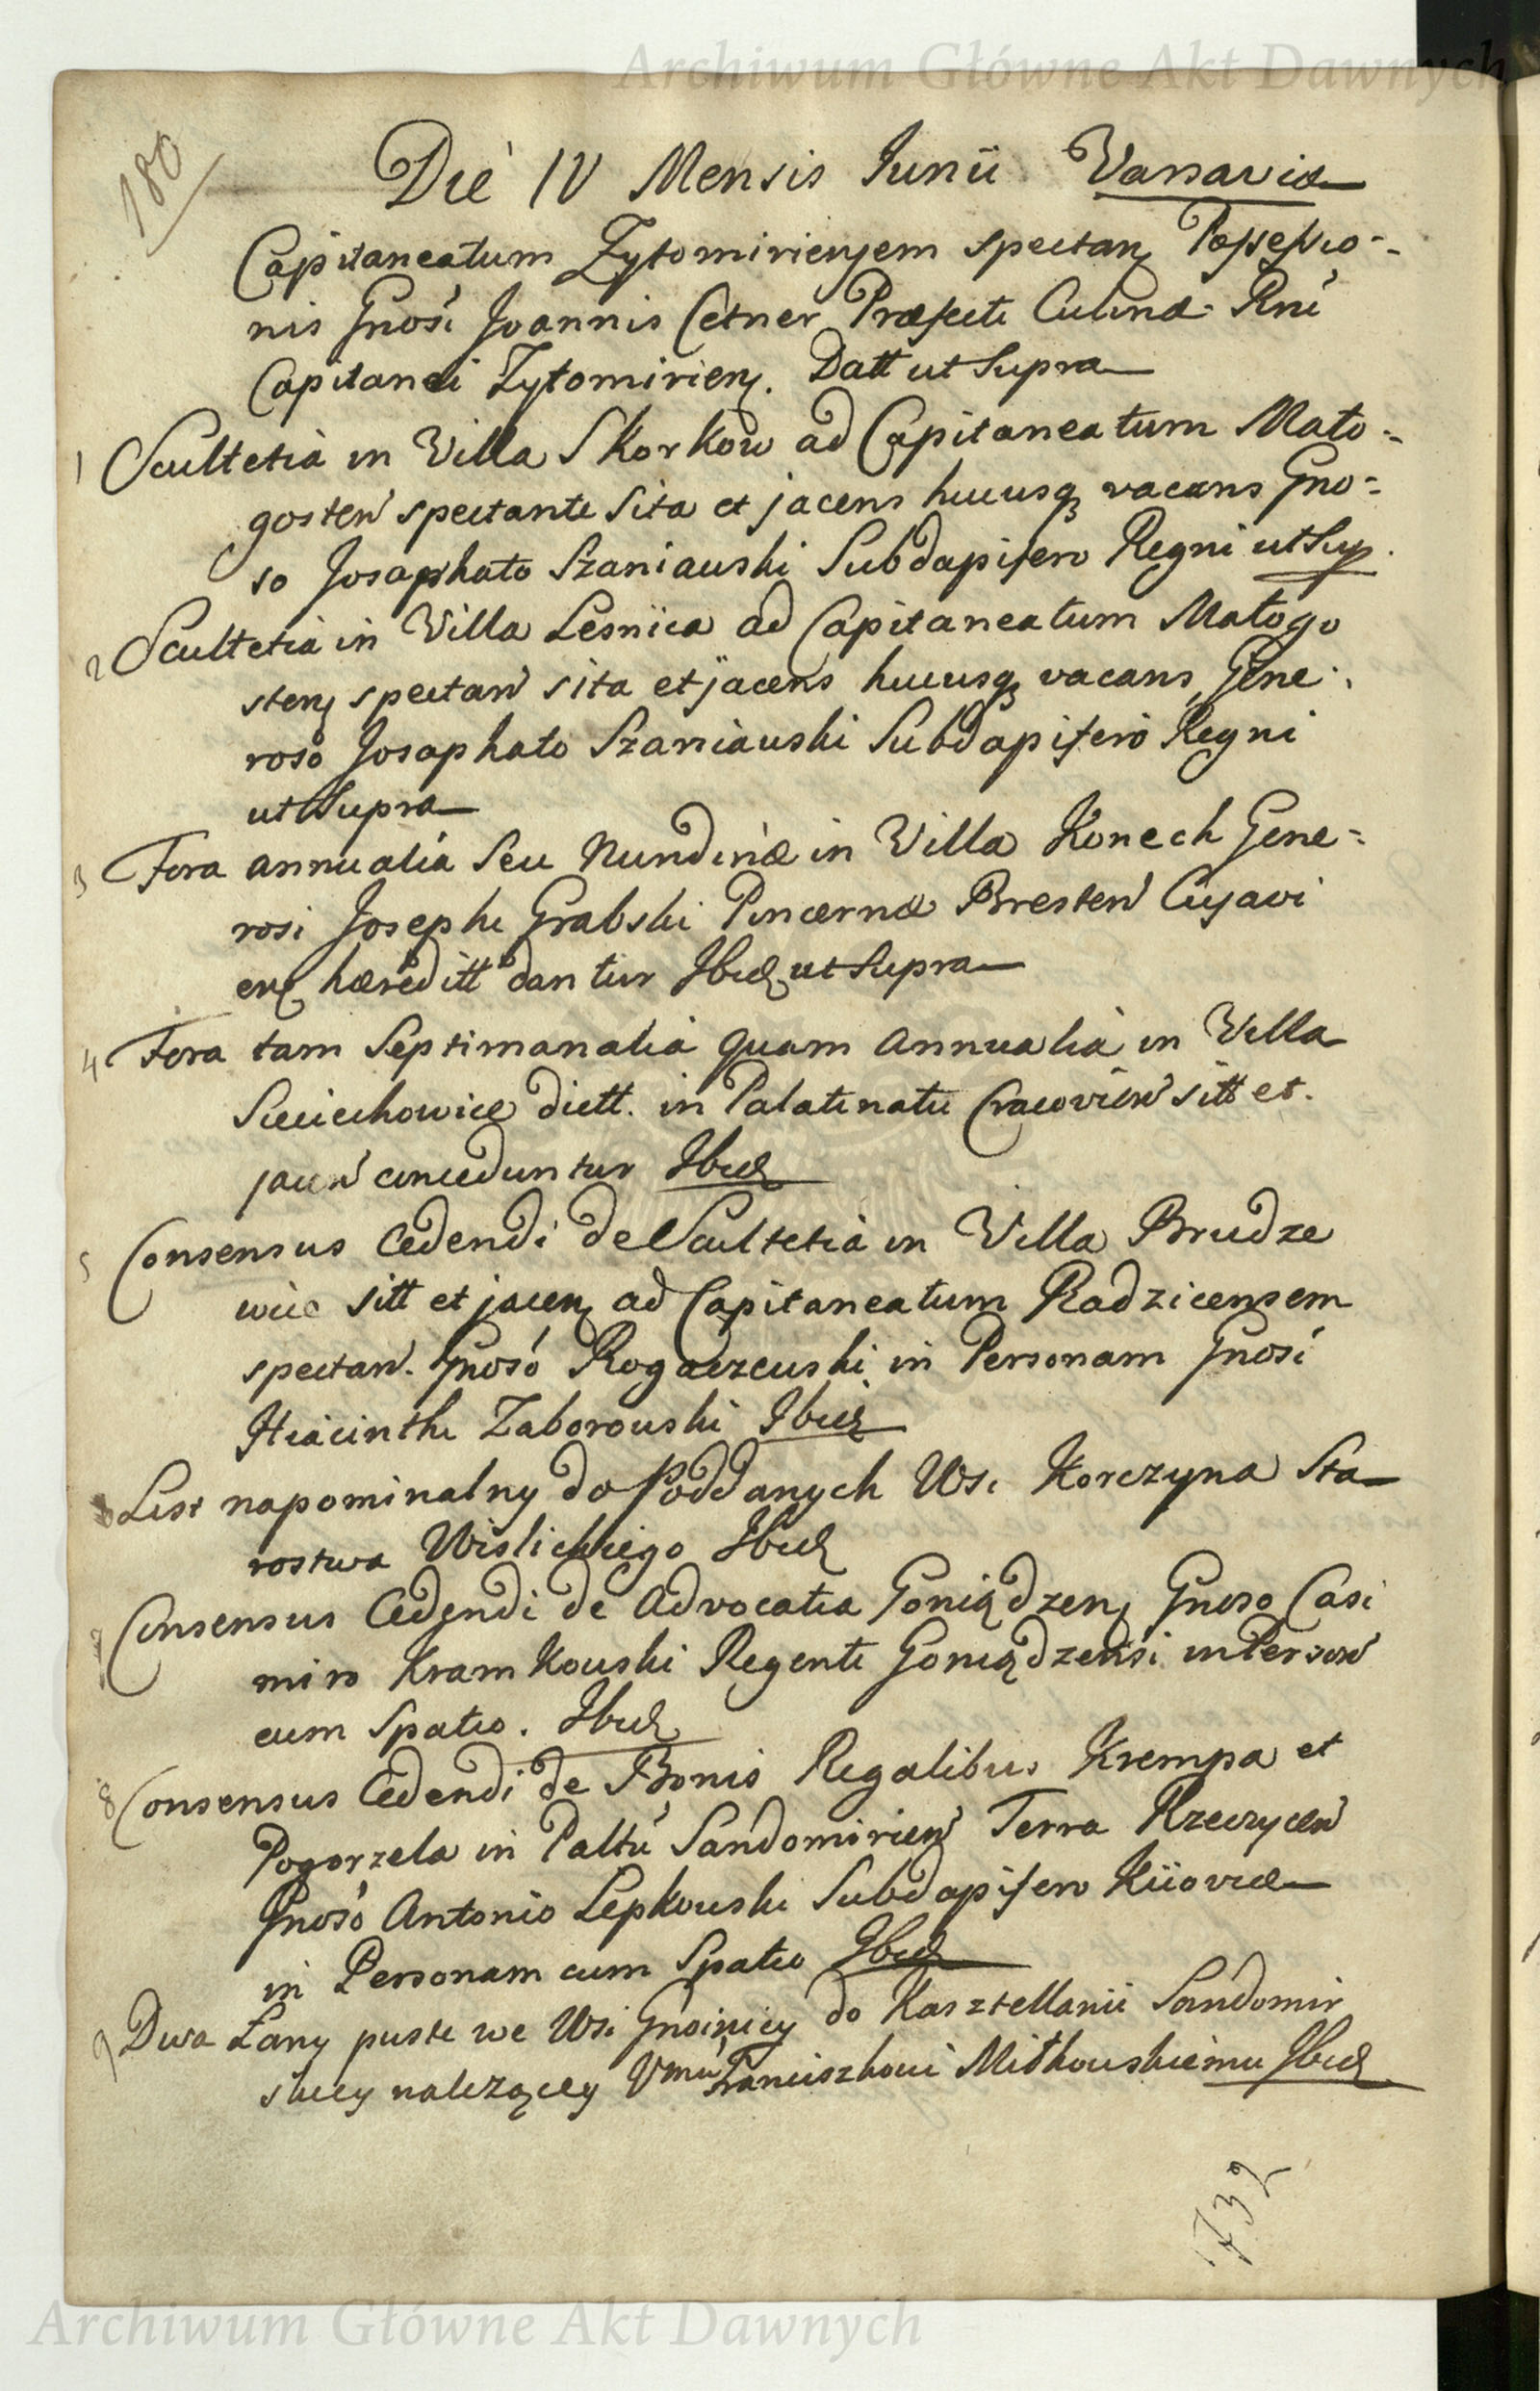 Archiwum Główne Akt Dawnych
180
Die IV Mensis Junii Varsaviæ
Capitaneatum Zytomiriensem spectanꝫ Possessio-
nis Gnosi Joannis Cetner Præfecti Culinæ Rni
Capitanei Zytomirienꝫ. Datt ut Supra
1 Scultetia in Villa Skorkow ad Capitaneatum Mało-
gosteñ spectante sita et jacens hucusqꝫ vacans Gno-
so Josaphato Szaniawski Subdapifero Regni ut Sup.
2 Scultetia in Villa Lesnica ad Capitaneatum Małogo
stenꝫ spectañ sita et jacens hucusqꝫ vacans Gene-
roso Josaphato Szaniawski Subdapifero Regni
ut Supra
3 Fora annualia Seu Nundinæ in Villa Konech Gene-
rosi Josephi Grabski Pincernæ Bresteñ Cujavi
enꝫ hæreditt dantur Ibidꝫ ut Supra
4 Fora tam Septimanalia quam annualia in Villa
Sieciechowice dictt. in Palatinatu Cracovieñ sitt et.
jaceñ conceduntur Ibidꝫ
5 Consensus Cedendi de Scultetia in Villa Brudze
wice sitt et jacenꝫ ad Capitaneatum Radzicensem
spectañ. Gnoso Rogaczewski in Personam Gnosi
Hiacinthi Zaborowski Ibidꝫ
List napominalny do Poddanych Wsi Korczyna Sta
rostwa Wislickiego Ibidꝫ
Consensus Cedendi de Advocatia Goniądzenꝫ Gnoso Casi
miro Kramkowski Regenti Goniądzensi in Persoñ
cum Spatio. Ibidꝫ
8 Consensus Cedendi de Bonis Regalibus Krempa et
Pogorzela in Paltu Sandomirieñ Terra Rzeczyceñ
Gnoso Antonio Lepkowski Subdapifero Kiioviæ
in Personam cum Spatio Ibidꝫ
9 Dwa Łany puste we Wsi Gnoinicy do Kasztellanii Sandomir
skiey należącey Vmu Franciszkowi Miłkowskiemu Ibidꝫ
732
Archiwum Główne Akt Dawnych